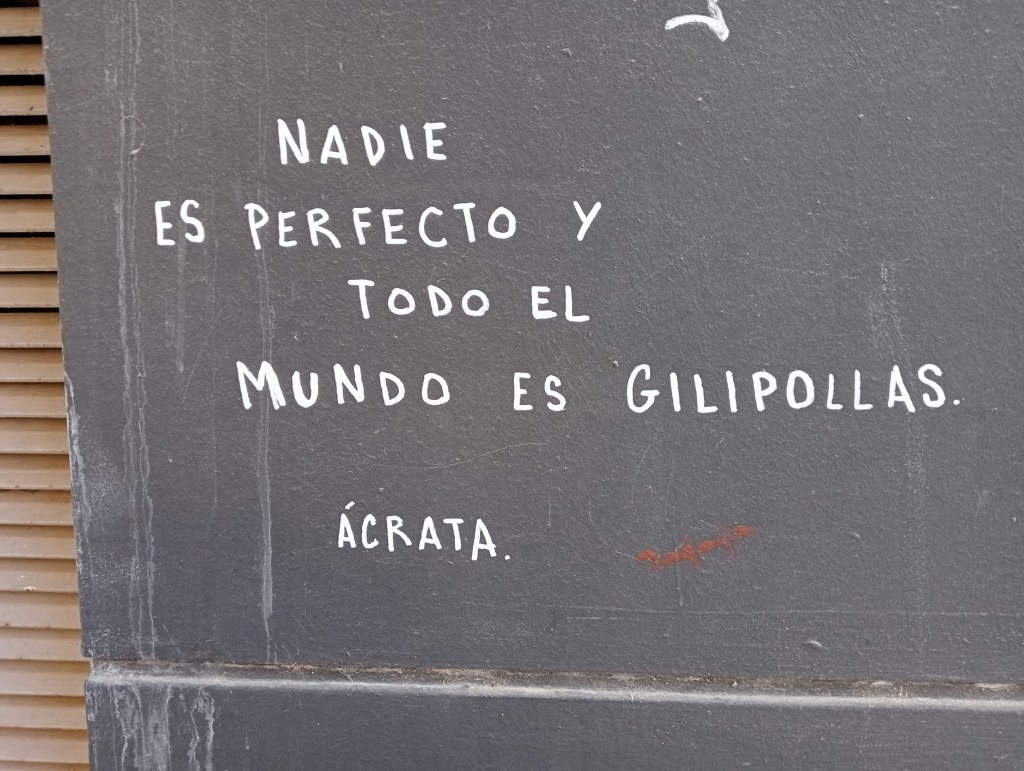 NADIE
ES PERFECTO Y
TODO EL
MUNDO ES GILIPOLLAS.
ÁCRATA.